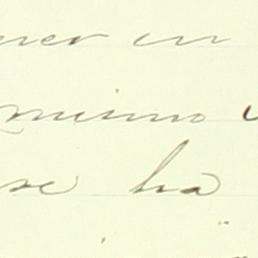 ner un
mismo
se ha